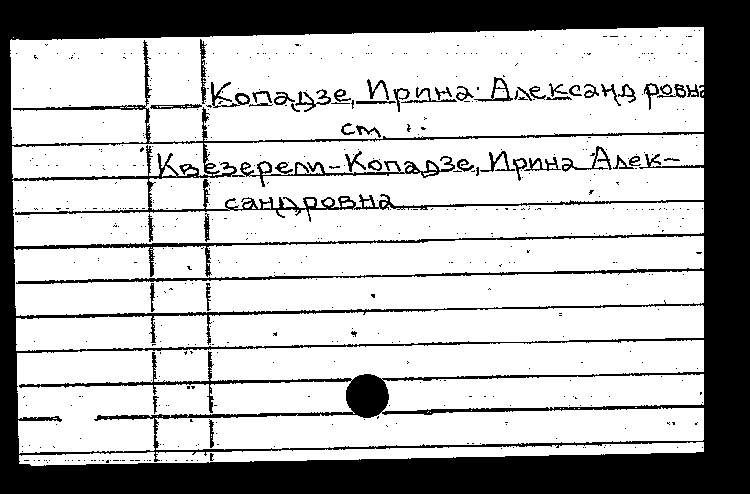 Копадзе, Ирина Александровна
ст.
Квезерели-Копадзе, Ирина Алек-
сандровна